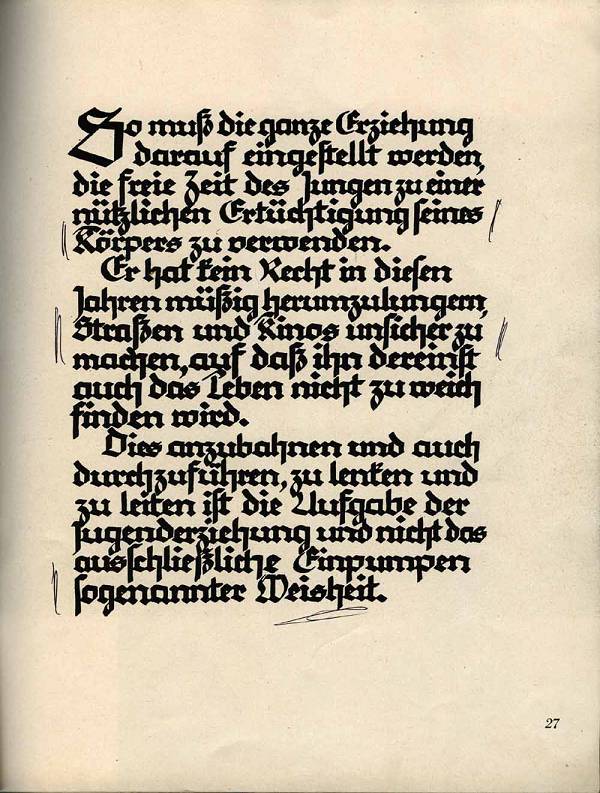 So muß die ganze Erziehung
darauf eingestellt werden,
die freie Zeit des Jungen zu einer
nützlichen Ertüchtigung seines
Körpers zu verwenden.
Er hat kein Recht in diesen
Jahren müßig herumzulungern,
Straßen und Kinos unsicher zu
machen, auf daß ihn dereinst
auch das Leben nicht zu weich
finden wird.
Dies anzubahnen und auch
durchzuführen, zu lenken und
zu leiten ist die Aufgabe der
Jugenderziehung und nicht das
ausschließliche Einpumpen
sogenannter Weisheit.
27